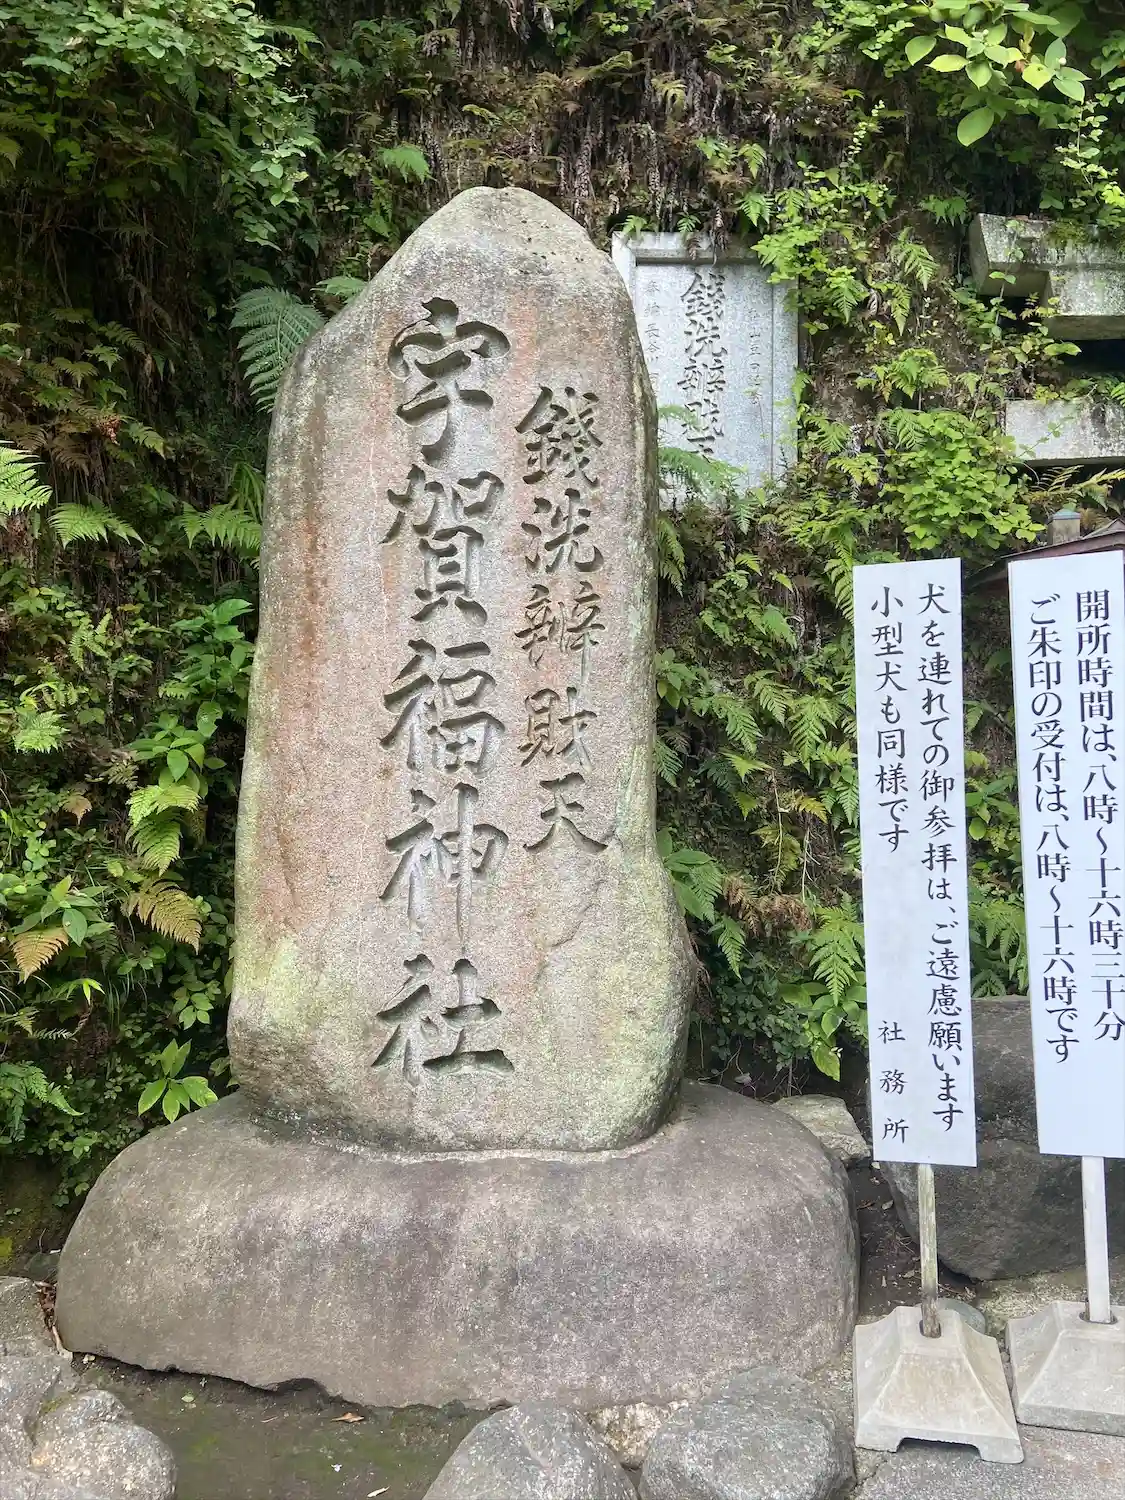 開所時間は、八時～十六時三十分
ご朱印の受付は、八時～十六時です
犬を連れての御参拝は、ご遠慮願います
小型犬も同様です
社務所
銭洗辨財天
錢洗辨財天
宇賀福神社